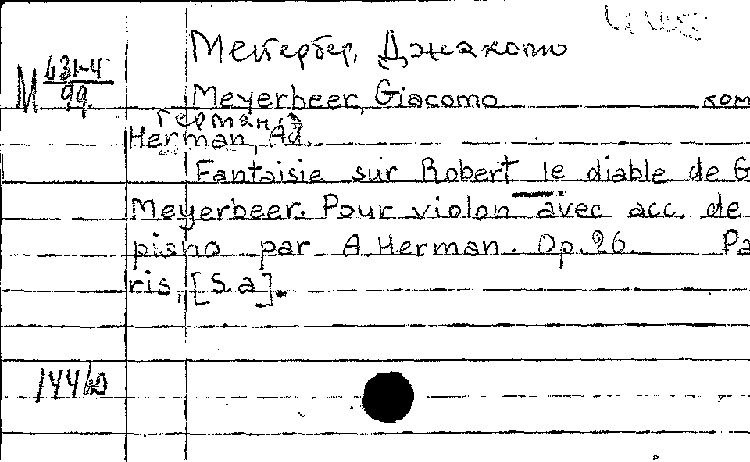 Мейербер, Джакомо
М 631-4
99.
Meyerbeer, Giacomo ком
Герман
Herman, Ad.
Fantaisie sur Robert le diable de G
Meyerbeer. Pour violon avec acc. de
piano par A. Herman. Op. 26. Pa
ris, [S.a].